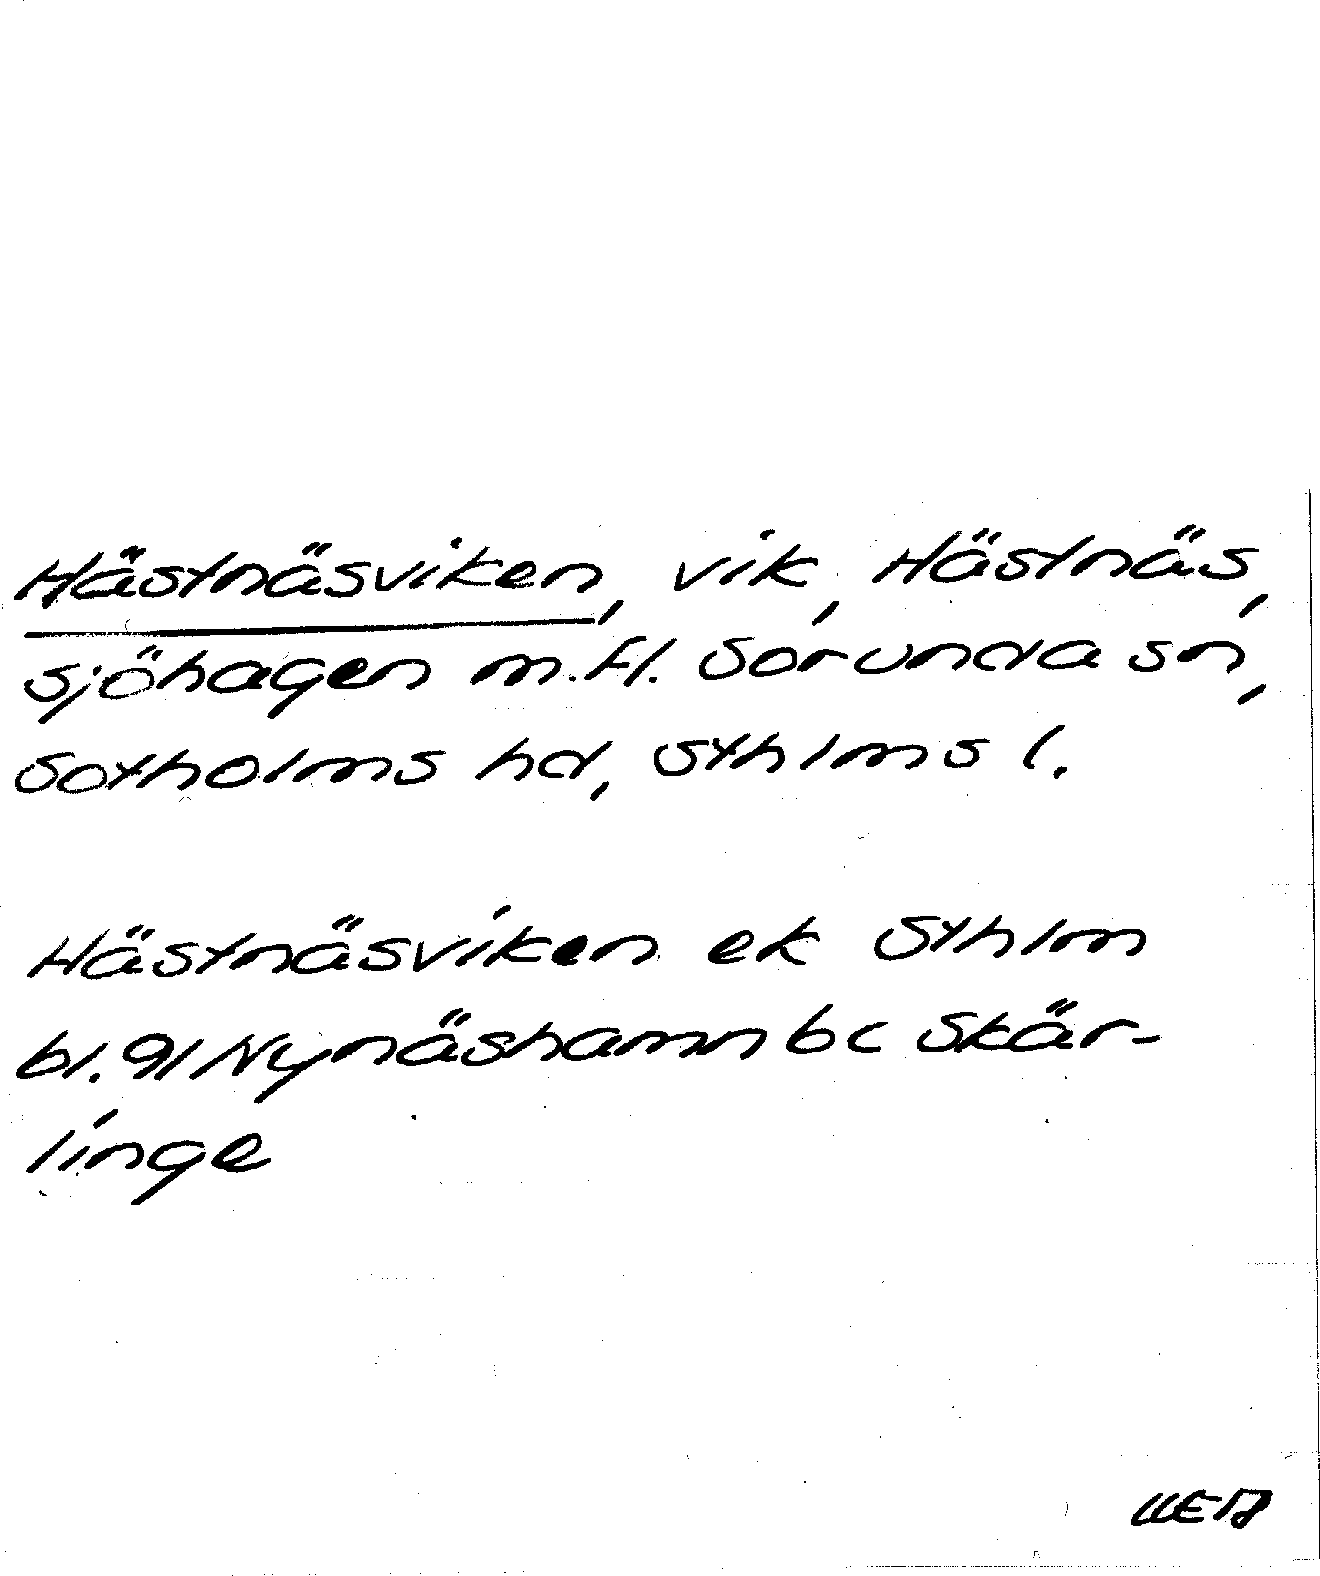 Hästnäsviken, vik, Hästnäs,
sjöhagen m.fl. Sorunda sn,
Sotholms hd, Sthlms l.
Hästnäsviken ek Sthlm
bl. 91 Nynäshamn bc Skär-
linge